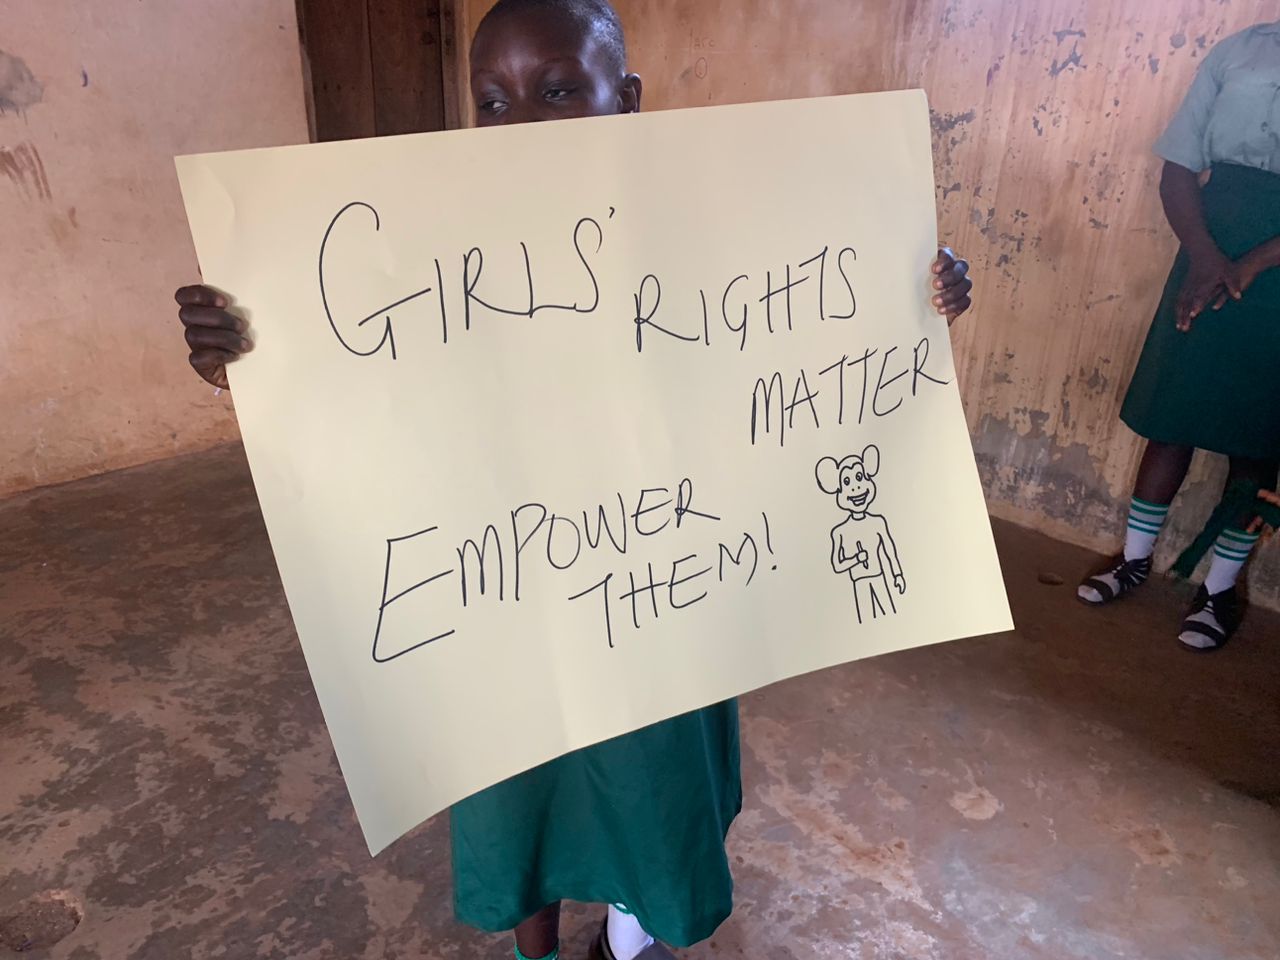 GIRLS'
RIGHTS
MATTER
EMPOWER
THEM!